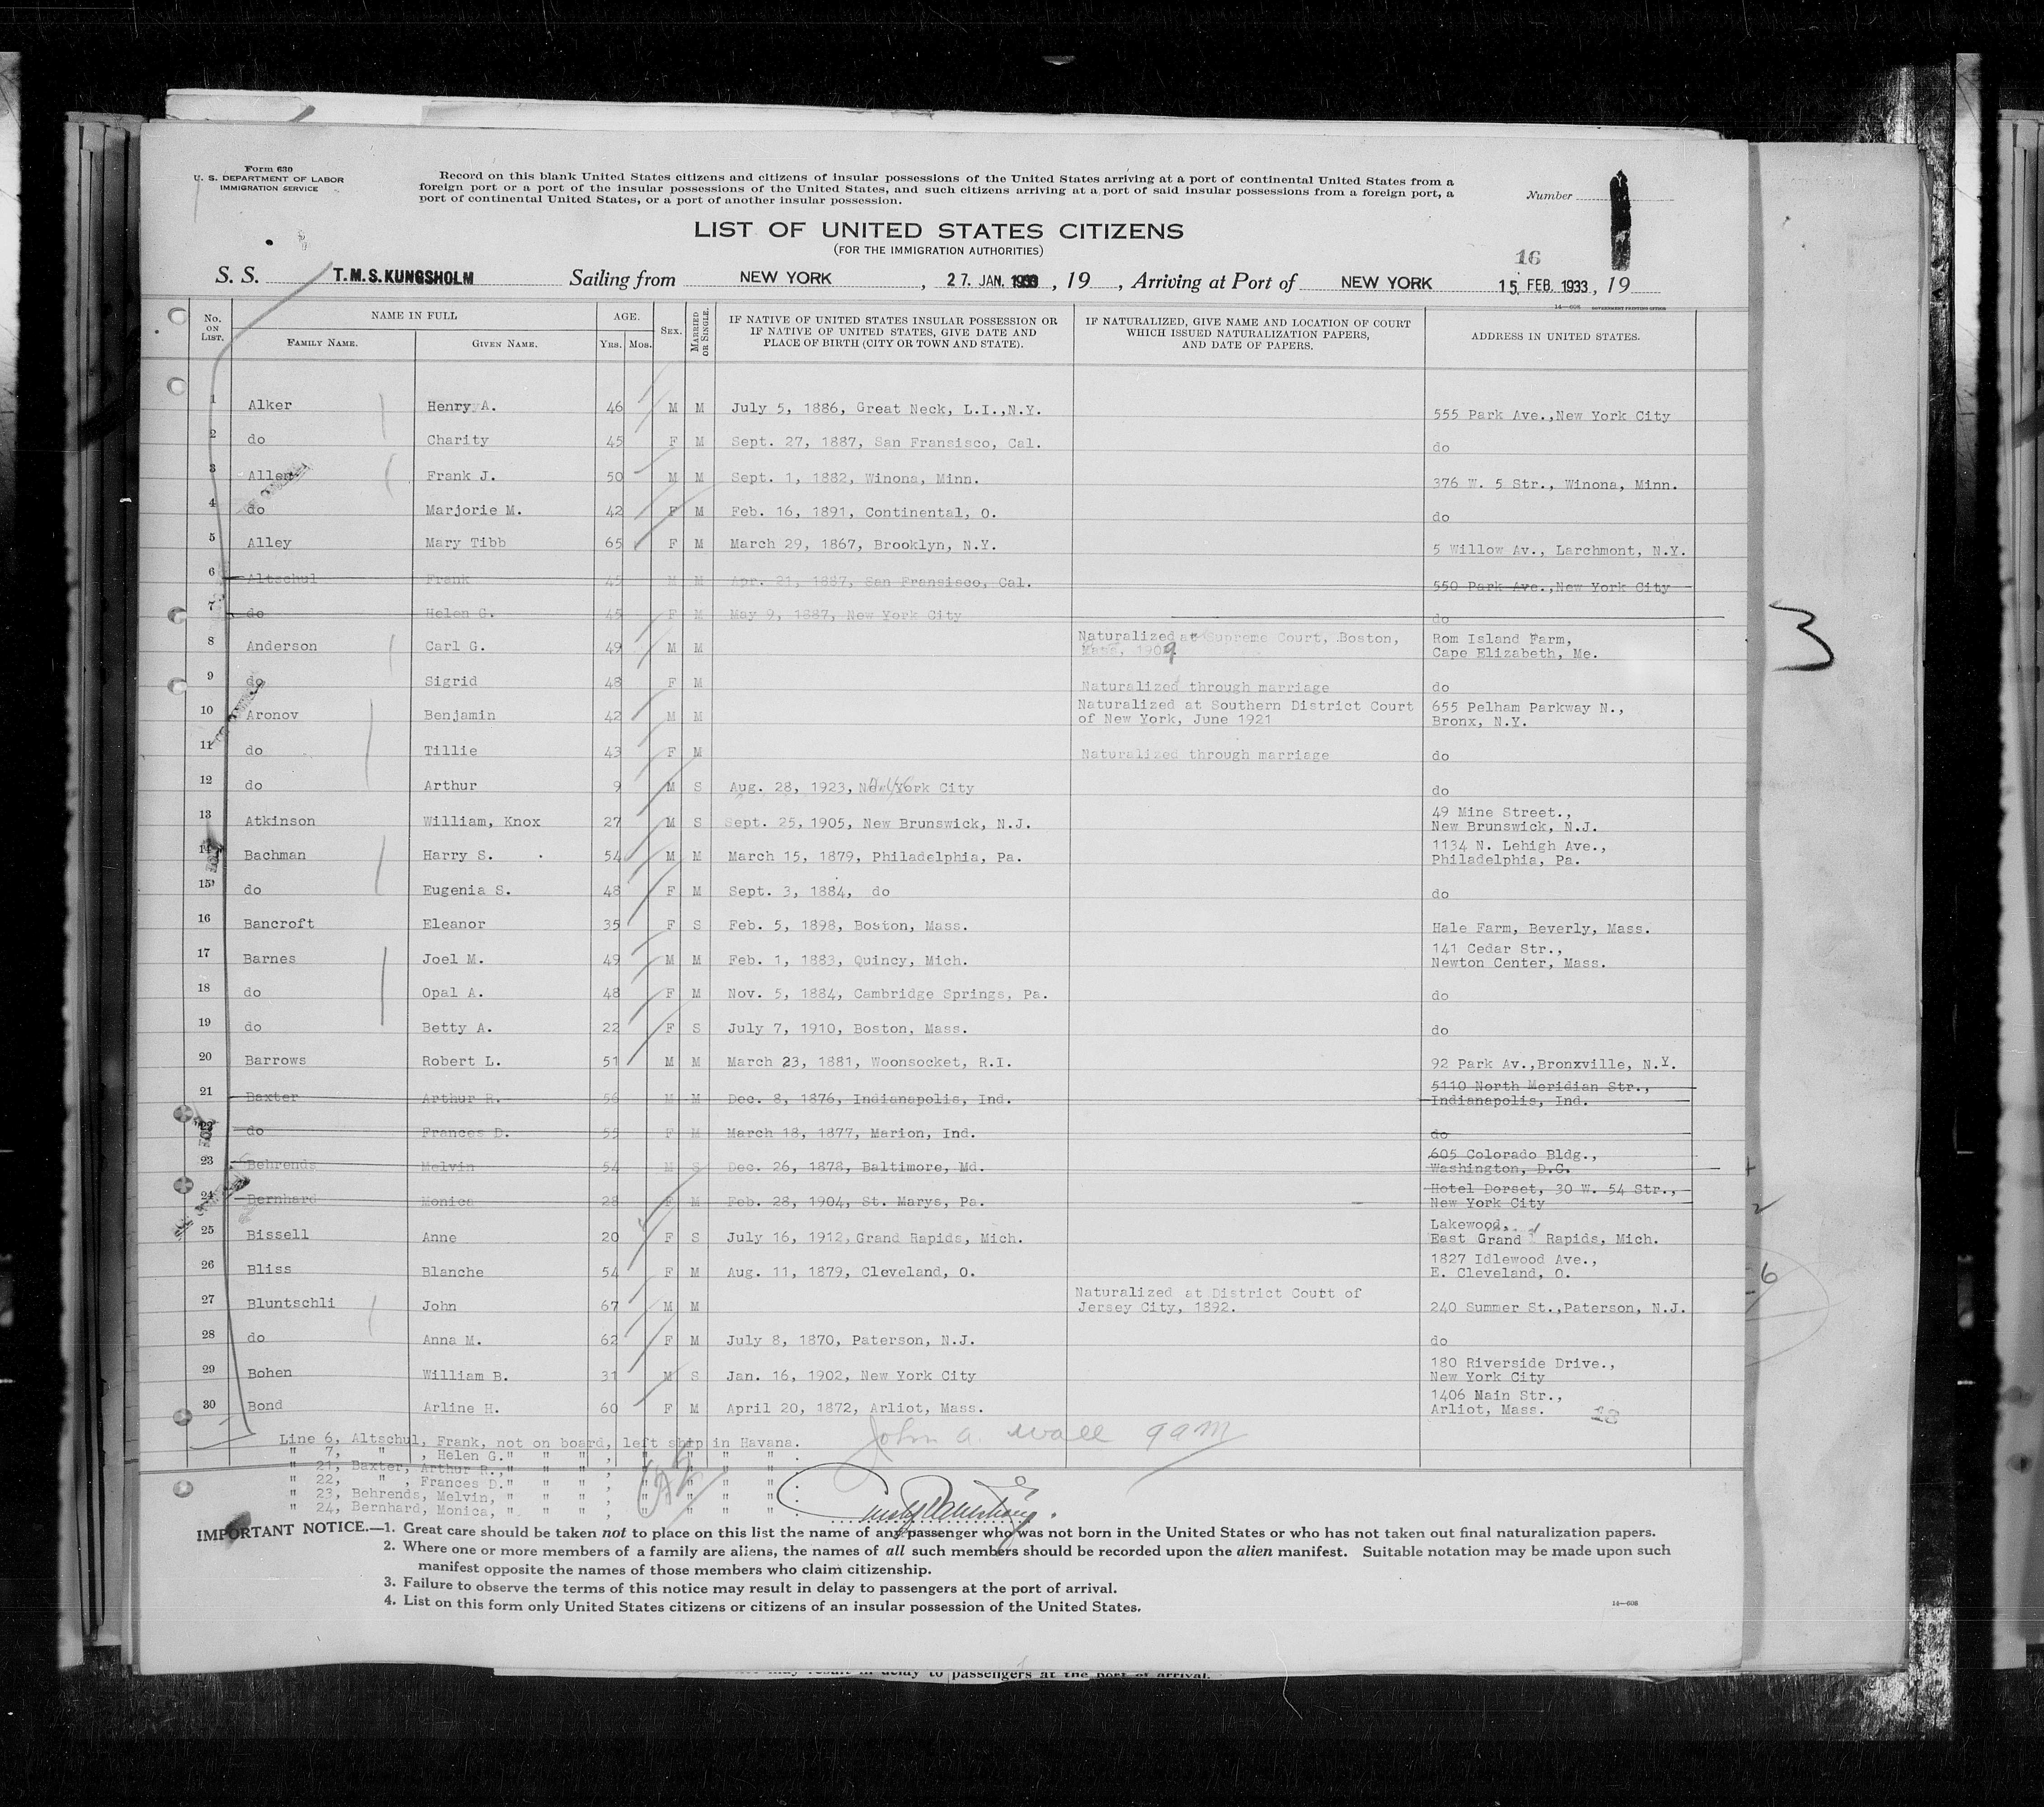 Form 630
U. S. DEPARTMENT OF LABOR
IMMIGRATION SERVICE
Record on this blank United States citizens and citizens of insular possessions of the United States arriving at a port of continental United States from a
foreign port or a port of the insular possessions of the United States, and such citizens arriving at a port of said insular possessions from a foreign port, a
port of continental United States, or a port of another insular possession.
Number
LIST OF UNITED STATES CITIZENS
(FOR THE IMMIGRATION AUTHORITIES)
16
S. S. T.M.S.KUNGSHOLM Sailing from NEW YORK, 27. JAN. 1933, 19 , Arriving at Port of NEW YORK 15. FEB. 1933, 19
14—608 GOVERNMENT PRINTING OFFICE
No. ON LIST. NAME IN FULL FAMILY NAME. GIVEN NAME. AGE. YRS. MOS. SEX. MARRIED OR SINGLE. IF NATIVE OF UNITED STATES INSULAR POSSESSION OR IF NATIVE OF UNITED STATES, GIVE DATE AND PLACE OF BIRTH (CITY OR TOWN AND STATE). IF NATURALIZED, GIVE NAME AND LOCATION OF COURT WHICH ISSUED NATURALIZATION PAPERS, AND DATE OF PAPERS. ADDRESS IN UNITED STATES.
1 Alker Henry A. 46 M M July 5, 1886, Great Neck, L.I.,N.Y. 555 Park Ave.,New York City
2 do Charity 45 F M Sept. 27, 1887, San Fransisco, Cal. do
3 Allen Frank J. 50 M M Sept. 1, 1882, Winona, Minn. 376 W. 5 Str., Winona, Minn.
4 do Marjorie M. 42 F M Feb. 16, 1891, Continental, O. do
5 Alley Mary Tibb 65 F M March 29, 1867, Brooklyn, N.Y. 5 Willow Av., Larchmont, N.Y.
6 Altschul Frank 45 M M Apr. 21, 1887, San Fransisco, Cal. 550 Park Ave.,New York City
7 do Helen G. 45 F M May 9, 1887, New York City do
8 Anderson Carl G. 49 M M Naturalized at Supreme Court, Boston, Mass, 1909 Rom Island Farm, Cape Elizabeth, Me.
9 do Sigrid 48 F M Naturalized through marriage do
10 Aronov Benjamin 42 M M Naturalized at Southern District Court of New York, June 1921 655 Pelham Parkway N., Bronx, N.Y.
11 do Tillie 43 F M Naturalized through marriage do
12 do Arthur 9 M S Aug. 28, 1923, New York City do
13 Atkinson William, Knox 27 M S Sept. 25, 1905, New Brunswick, N.J. 49 Mine Street., New Brunswick, N.J.
14 Bachman Harry S. 54 M M March 15, 1879, Philadelphia, Pa. 1134 N. Lehigh Ave., Philadelphia, Pa.
15 do Eugenia S. 48 F M Sept. 3, 1884, do do
16 Bancroft Eleanor 35 F S Feb. 5, 1898, Boston, Mass. Hale Farm, Beverly, Mass.
17 Barnes Joel M. 49 M M Feb. 1, 1883, Quincy, Mich. 141 Cedar Str., Newton Center, Mass.
18 do Opal A. 48 F M Nov. 5, 1884, Cambridge Springs, Pa. do
19 do Betty A. 22 F S July 7, 1910, Boston, Mass. do
20 Barrows Robert L. 51 M M March 23, 1881, Woonsocket, R.I. 92 Park Av.,Bronxville, N.Y.
21 Baxter Arthur R. 56 M M Dec. 8, 1876, Indianapolis, Ind. 5110 North Meridian Str., Indianapolis, Ind.
22 do Frances D. 55 F M March 18, 1877, Marion, Ind. do
23 Behrends Melvin 54 M S Dec. 26, 1878, Baltimore, Md. 605 Colorado Bldg., Washington, D.C.
24 Bernhard Monica 28 F M Feb. 28, 1904, St. Marys, Pa. Hotel Dorset, 30 W. 54 Str., New York City
25 Bissell Anne 20 F S July 16, 1912, Grand Rapids, Mich. Lakewood, East Grand Rapids, Mich.
26 Bliss Blanche 54 F M Aug. 11, 1879, Cleveland, O. 1827 Idlewood Ave., E. Cleveland, O.
27 Bluntschli John 67 M M Naturalized at District Coutt of Jersey City, 1892. 240 Summer St.,Paterson, N.J.
28 do Anna M. 62 F M July 8, 1870, Paterson, N.J. do
29 Bohen William B. 31 M S Jan. 16, 1902, New York City 180 Riverside Drive., New York City
30 Bond Arline H. 60 F M April 20, 1872, Arliot, Mass. 1406 Main Str., Arliot, Mass.
3
6
18
Line 6, Altschul, Frank, not on board, left ship in Havana.
" 7, " , Helen G." " " , " " " " .
" 21, Baxter, Arthur R.," " " , " " " " .
" 22, " , Frances D." " " , " " " " .
" 23, Behrends, Melvin, " " " , " " " " .
" 24, Bernhard, Monica, " " " , " " " " .
John A. Wall 9am
IMPORTANT NOTICE.—1. Great care should be taken not to place on this list the name of any passenger who was not born in the United States or who has not taken out final naturalization papers.
2. Where one or more members of a family are aliens, the names of all such members should be recorded upon the alien manifest. Suitable notation may be made upon such
manifest opposite the names of those members who claim citizenship.
3. Failure to observe the terms of this notice may result in delay to passengers at the port of arrival.
4. List on this form only United States citizens or citizens of an insular possession of the United States.
14—608
may result in delay to passengers at the port of arrival.